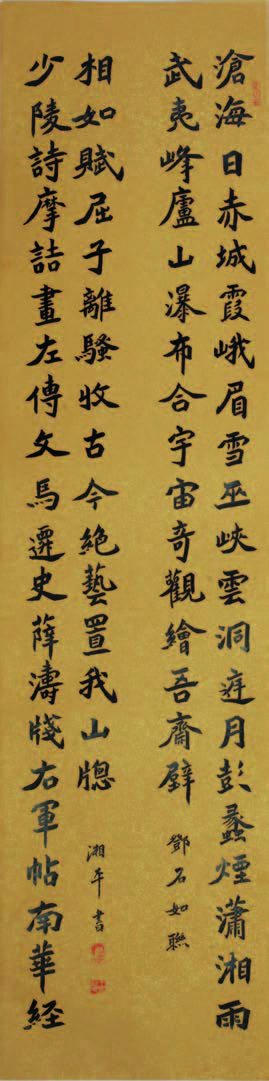 滄海日赤城霞峨眉雪巫峽雲洞庭月彭蠡煙瀟湘雨
武夷峰廬山瀑布合宇宙奇觀繪吾齋壁
鄧石如聯
少陵詩摩詰畫左傳文馬遷史薛濤牋右軍帖南華経
相如賦屈子離騷收古今絶藝置我山牕
湘平書